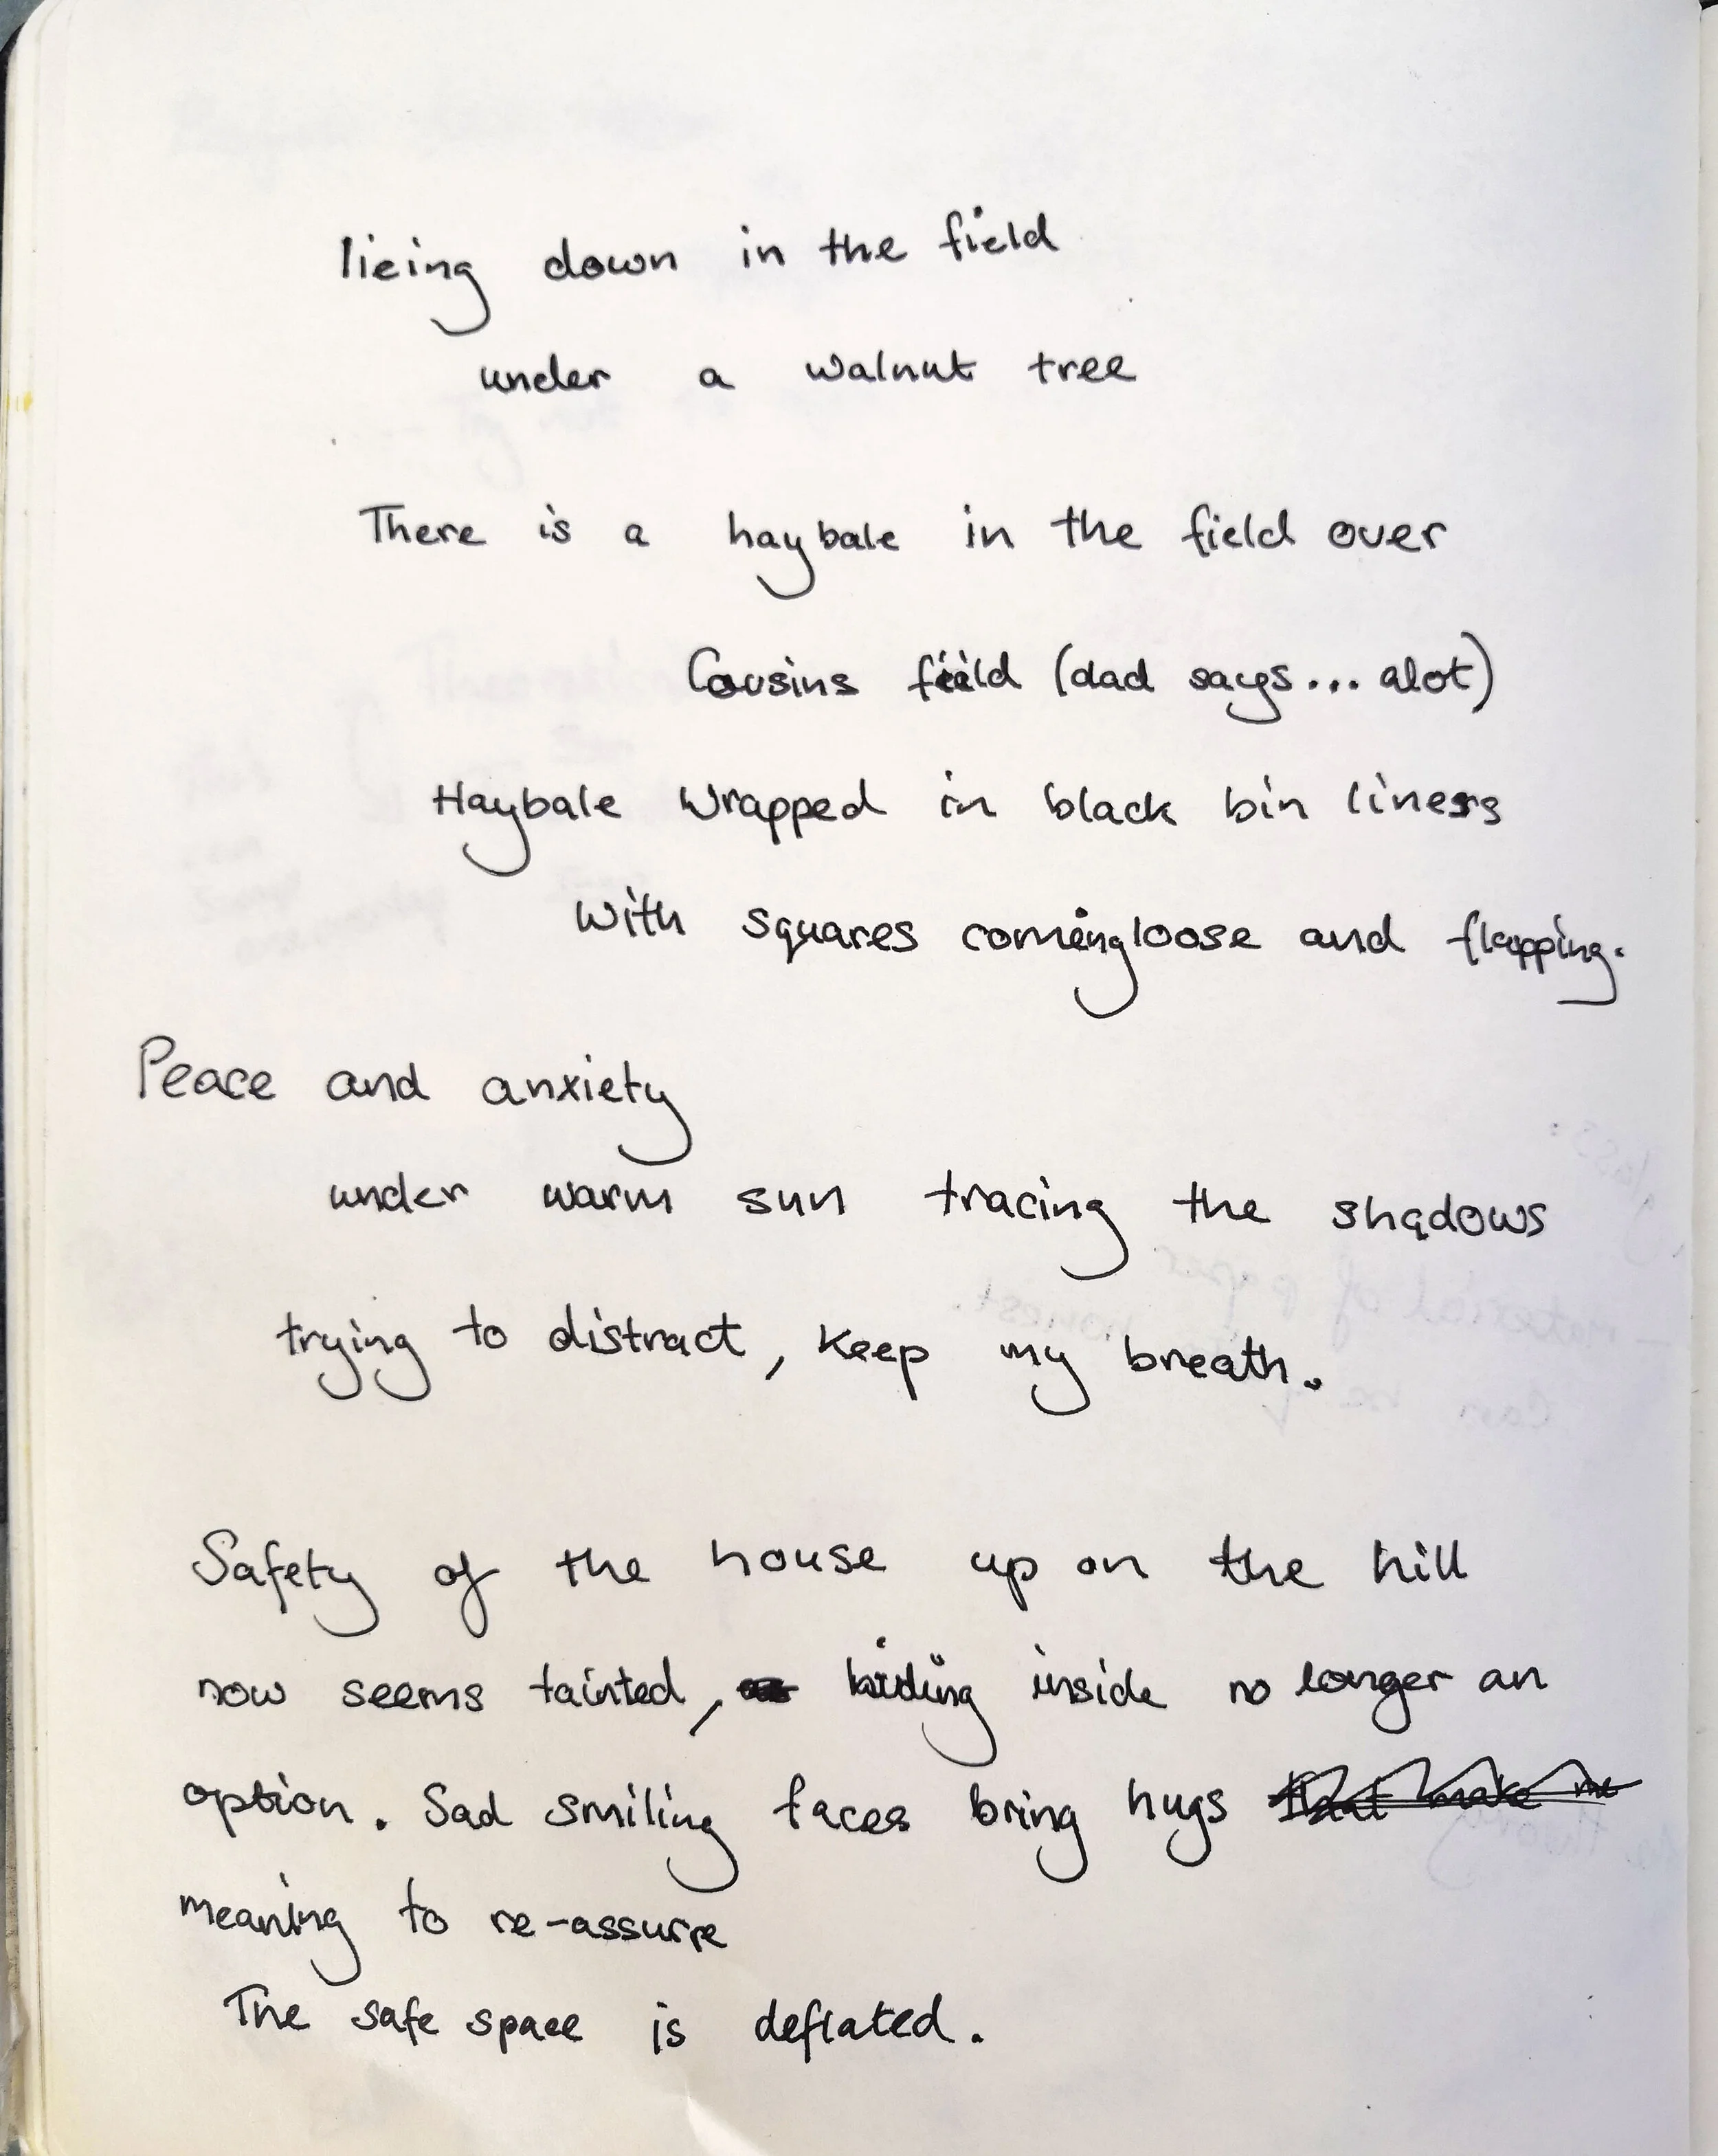 lieing down in the field
under a walnut tree
There is a haybale in the field over
Cousins field (dad says... alot)
Haybale wrapped in black bin liners
with squares coming loose and flapping.
Peace and anxiety
under warm sun tracing the shadows
trying to distract, keep my breath.
Safety of the house up on the hill
now seems tainted, hiding inside no longer an
option. Sad smiling faces bring hugs that make me
meaning to re-assure
The safe space is deflated.